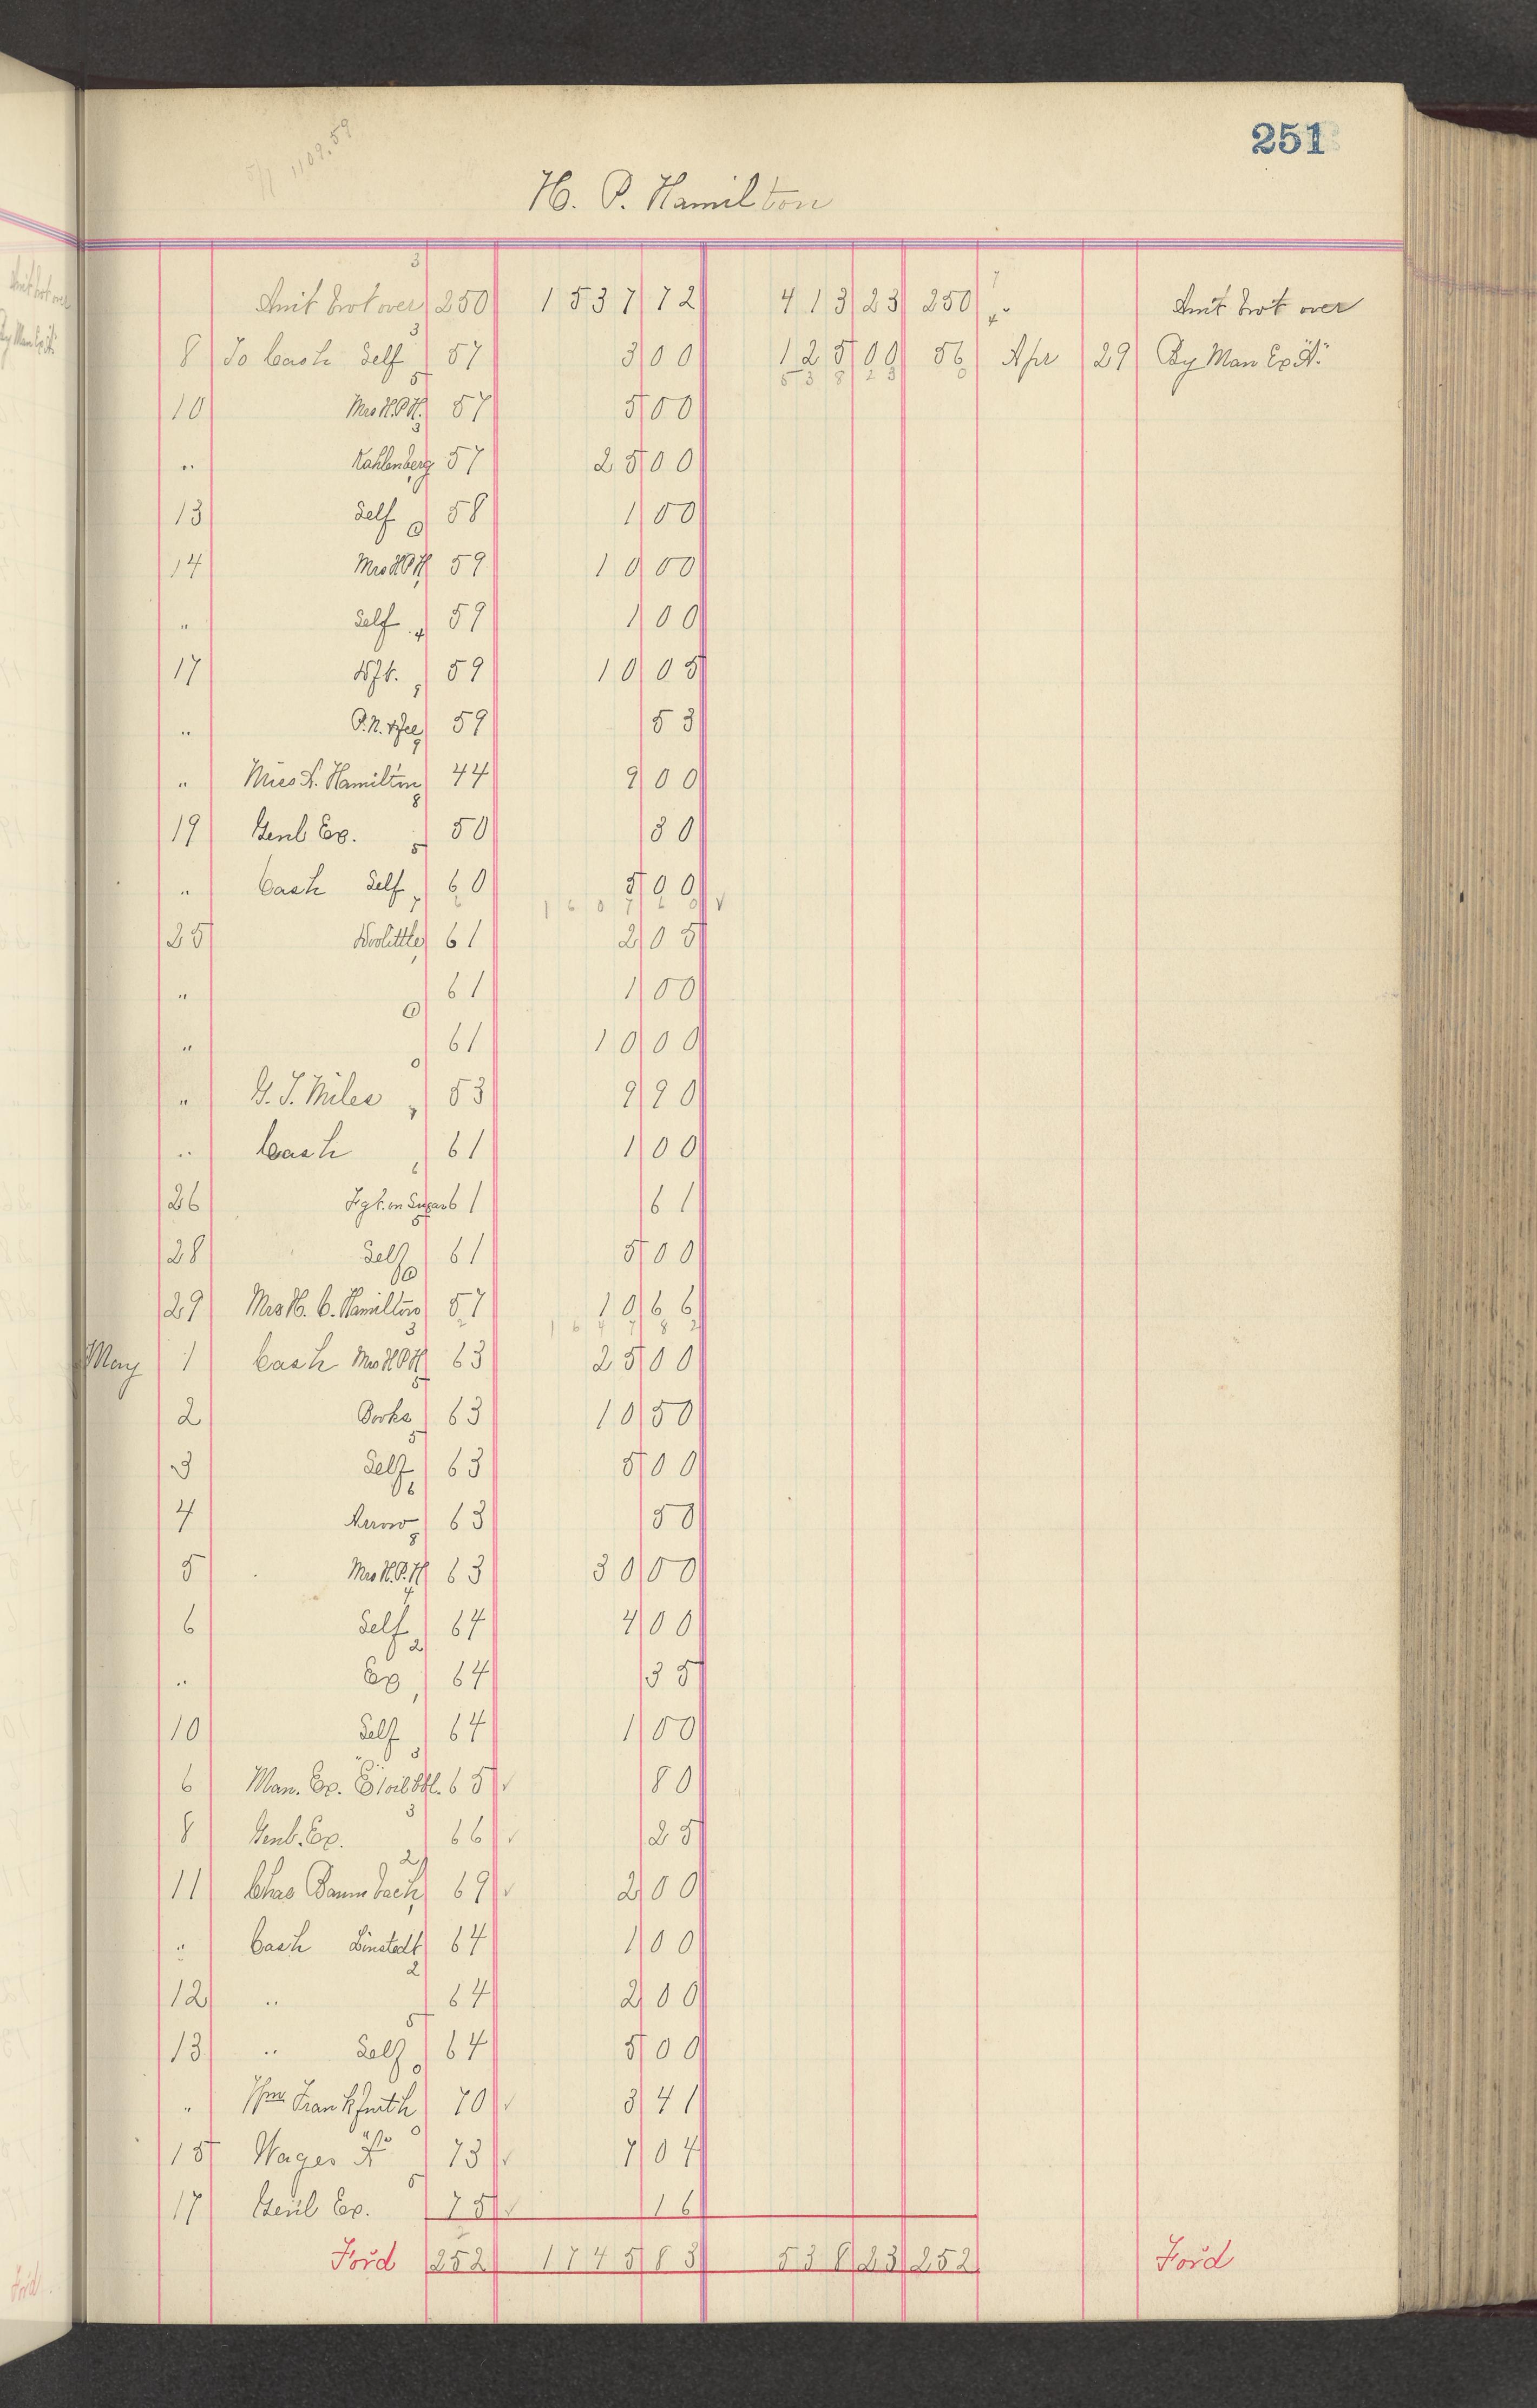 251
1109.59
H. P. Hamilton
Amt brot over 250 1537 72 413 23 250 Amt brot over
8 To Cash Self 57 3 00 125 00 56 Apr 29 By Man Ex %
538 23
10 Mrs H.P.H. 57 5 00
" Kahlenberg 57 25 00
13 Self 58 1 00
14 Mrs H.P.H 59 10 00
" Self 59 1 00
17 59 10 05
" P.N. 59 53
" Miss A. Hamilton 44 9 00
19 Genl Ex. 50 30
" Cash Self 60 5 00
25 Doolittle 61 2 05
" 61 1 00
" 61 10 00
" G. J. Miles 53 9 90
" Cash 61 1 00
26 Frgt. on Sugar 61 61
28 Self 61 5 00
29 Mrs H. C. Hamilton 57 10 66
May 1 Cash Mrs H.P.H 63 25 00
2 Books 63 10 50
3 Self 63 5 00
4 Arrow 63 50
5 Mrs H.P.H 63 30 00
6 Self 64 4 00
" Ex 64 35
10 Self 64 1 00
6 Man. Ex. 65 80
8 Genl. Ex. 66 25
11 Chas Dannbach 69 2 00
" Cash Linstedt 64 1 00
12 " 64 2 00
13 " Self 64 5 00
" Wm Frankfurth 70 3 41
15 Wages % 73 7 04
17 Genl Ex. 75 16
Ford 252 1745 83 538 23 252 Ford